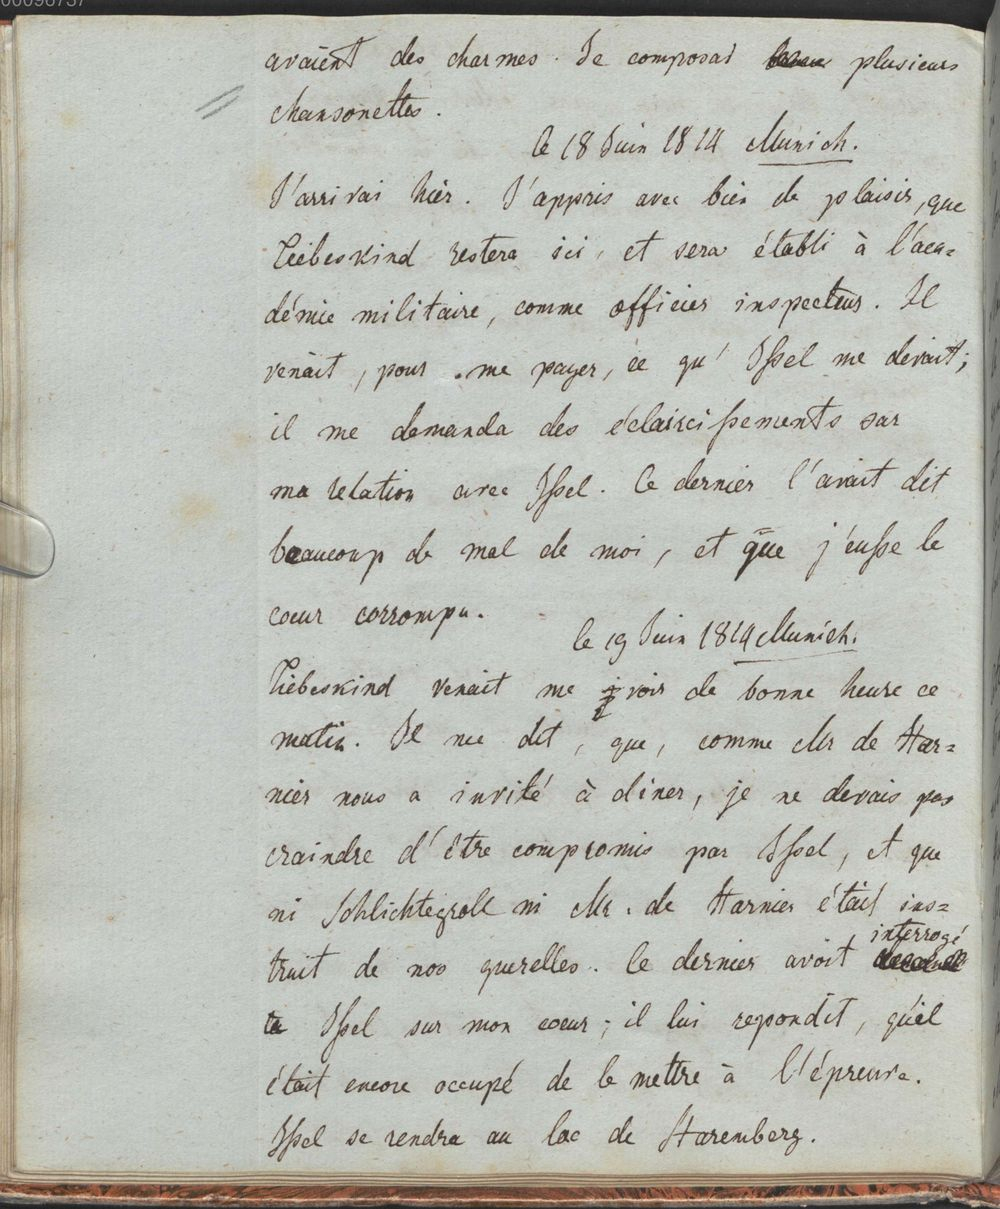 00096737
avaient des charmes. Je composai plusieurs
chansonettes.
le 18 Juin 1814 Munich.
J'arrivai hier. J'appris avec bien de plaisir, que
Liebeskind restera ici, et sera établi à l'aca=
démie militaire, comme officier inspecteur. Il
venait, pour me payer, ce qu' Issel me devait;
il me demanda des éclaircissements sur
ma relation avec Issel. Ce dernier l'avait dit
beaucoup de mal de moi, et que j'eusse le
coeur corrompu.
le 19 Juin 1814 Munich.
Liebeskind venait me voir de bonne heure ce
matin. Il me dit, que, comme Mr de Har=
nier nous a invité à diner, je ne devais pas
craindre d'être compromis par Issel, et que
ni Schlichtegroll ni Mr. de Harnier était ins=
truit de nos querelles. Ce dernier avoit interrogé
Issel sur mon coeur; il lui repondit, qu'il
était encore occupé de le mettre à l'épreuve.
Issel se rendra au lac de Staremberg.